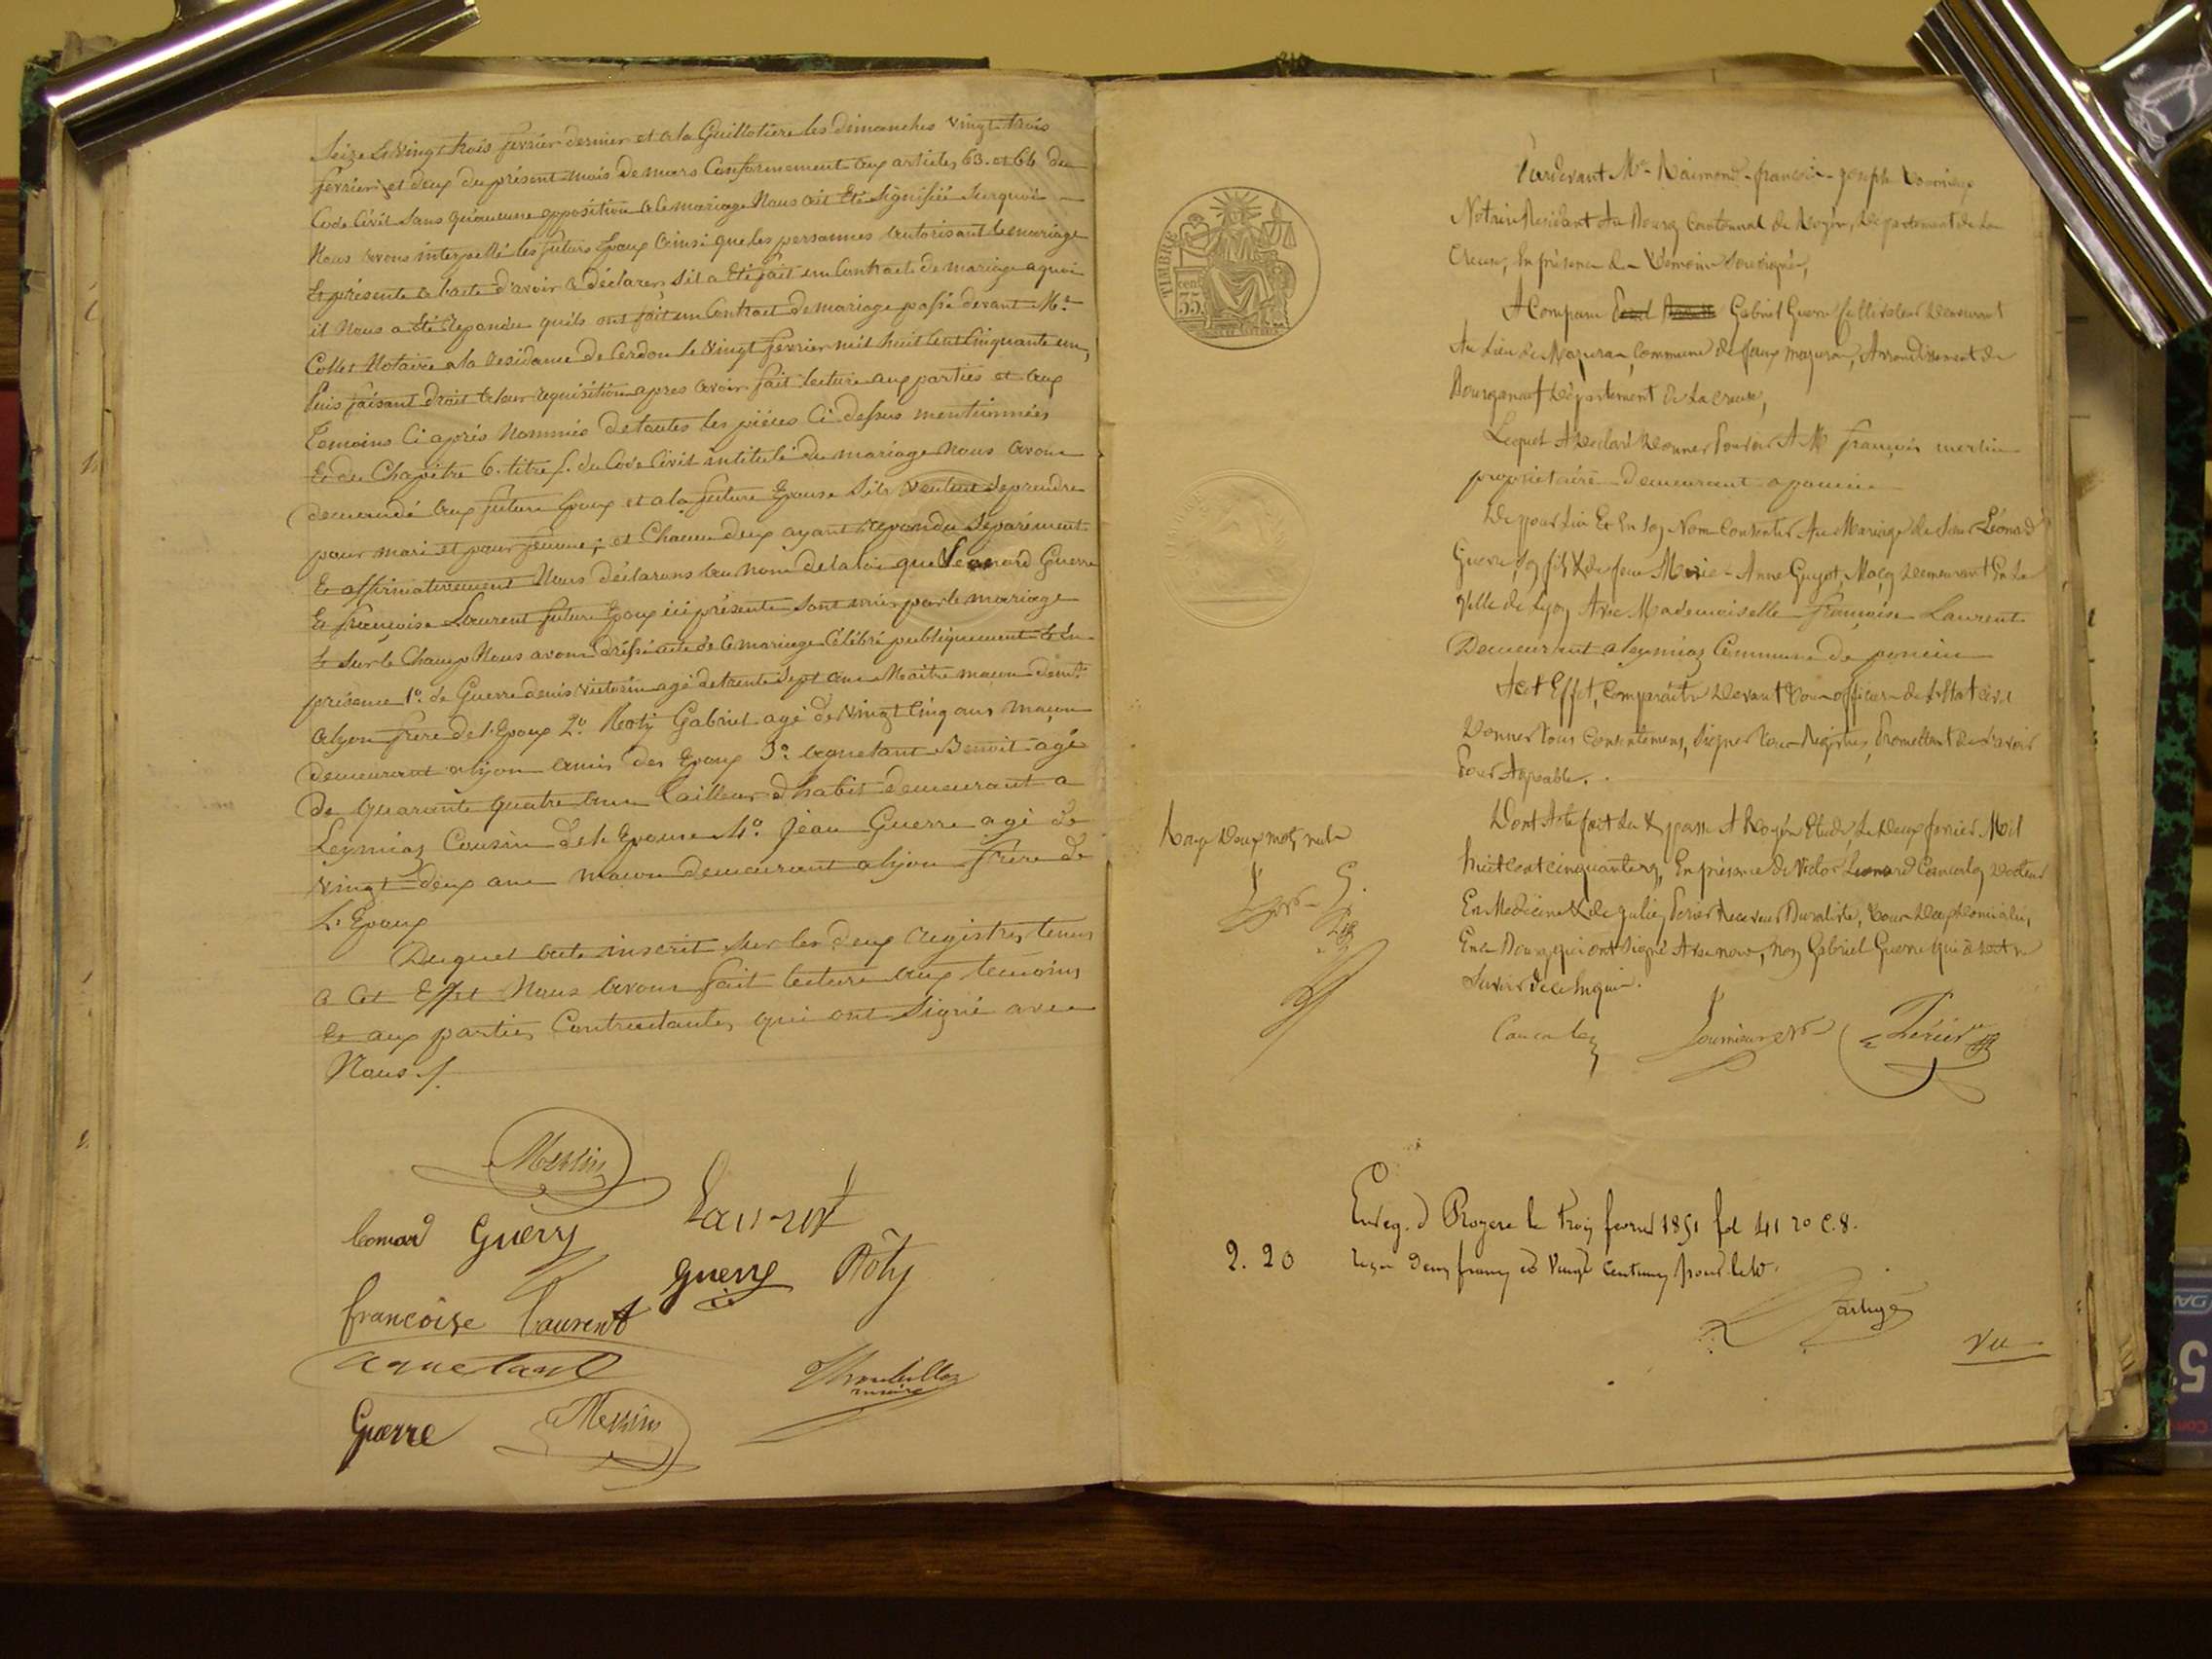 Seize & vingt trois fevrier dernier et a la Guillotière les dimanches vingt trois
fevrier et deux du présent mois de mars Conformement aux articles 63. et 64 du
Code Civil sans qu'aucune opposition a ce mariage Nous ait Eté signifiée Surquoi
Nous avons interpellé les futurs Epoux ainsi que les personnes autorisant le mariage
Et présente a l'acte d'avoir a déclarer s'il a Eté fait un Contrat de mariage a quoi
il Nous a Eté Repondu quils ont fait un Contrat de mariage passé devant Me
Collet Notaire a la residance de Cerdon le vingt fevrier mil huit Cent Cinquante un,
Puis faisant droit a leur requisition apres avoir fait lecture aux parties et aux
temoins Ci après Nommés de toutes les pièces Ci dessus mentionnées
Et du Chapitre 6. titre 5. du Code Civil intitulé du mariage Nous avons
demandé aux future Epoux et a la future Epouse s'ils veulent se prendre
pour mari et pour femme; et Chacun deux ayant repondu Séparément
Et affirmativement Nous déclarons au nom de la loi que Leonard Guerre
Et françoise Laurent future Epoux ici présente sont unis par le mariage
Et sur le Champ Nous avons dréssé acte de ce mariage Célébré publiquement Et En
présence 1o. de Guerre denis victorin agé de trente sept ans Maitre macon demt.
a lyon frere de l'Epoux 2o. Roty Gabriel agé de vingt Cinq ans maçon
demeurant a lyon amis des Epoux 3o. aguetant Benoit agé
de quarante quatre ans tailleur d'habit demeurant a
Leymiaz Cousin de l'Epouse 4o. Jean Guerre agé de
vingt deux ans macon demeurant a lyon frere de
L'Epoux
Duquel acte inscrit sur les deux registres tenus
a cet Effet Nous avons fait lecture aux temoins
Et aux parties Contractantes qui ont signé avec
Nous ./.
Merlin
leonard Guerre
Laurent
guerre Rôty
françoise Laurent
aguetant
maire
Guerre Merlin
TIMBRE
cent 35
Pardevant Me Raimond-françois-joseph
Notaire Résidant Au Bourg Cantonnal de Royère, Département de La
Creuse, En présence des Témoins soussignés,
A Comparu Gabriel Guerre Cultivateur Demeurant
Au Lieu de Mazuras, Commune de faux mazuras, Arrondissement de
Bourganeuf Département de La Creuse,
Lequel A Déclaré Donner Pouvoir A M. françois merlin
propriétaire Demeurant a poncin
De pour Lui Et En son Nom Consentir Au Mariage de sieur Léonard
Guerre, son fils & de feue Marie-Anne Guyot, Maçon Demeurant En La
Ville de Lyon Avec Mademoiselle françoise Laurent
Demeurant a leymiaz Commune de poncin
A cet Effet, Comparaître Devant tous officiers de L'Etat Civil
Donner tous Consentemens, Signer tous Registres, Promettant de L'avoir
Pour Agréable.
Dont Acte fait Lu & passé A Royère Etude, Le Deux fevrier Mil
huit cent cinquante un, En présence de Victor Leonard Cancalon Docteur
En Médecine & de julien Perier Receveur Buraliste, tous Deux Domiciliés
En ce Bourg, qui ont signé Avec nous, non Gabriel Guerre qui a dit Ne
Savoir de ce Enquis.
Rayé Deux mots nuls
Cancalon
Perier
Enreg. à Royere le trois fevrier 1851 fol 41 ro C. 8.
2. 20
reçu deux francs et vingt centimes pour le tout.
Vu